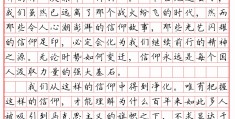 我们虽然已远离了那个战火纷飞的时代，然而
那些令人心潮澎湃的信仰故事，那些光芒闪耀
的信仰足印，必定会化为我们继续前行的精神
之源。无论时势如何变迁，信仰永远是每个国
人汲取力量的强大基石。
我们从这样的信仰中得到净化。唯有把握
这样的信仰，才能理解为什么百年来如此多人
被吸引到马克思主义的旗帜之下，不